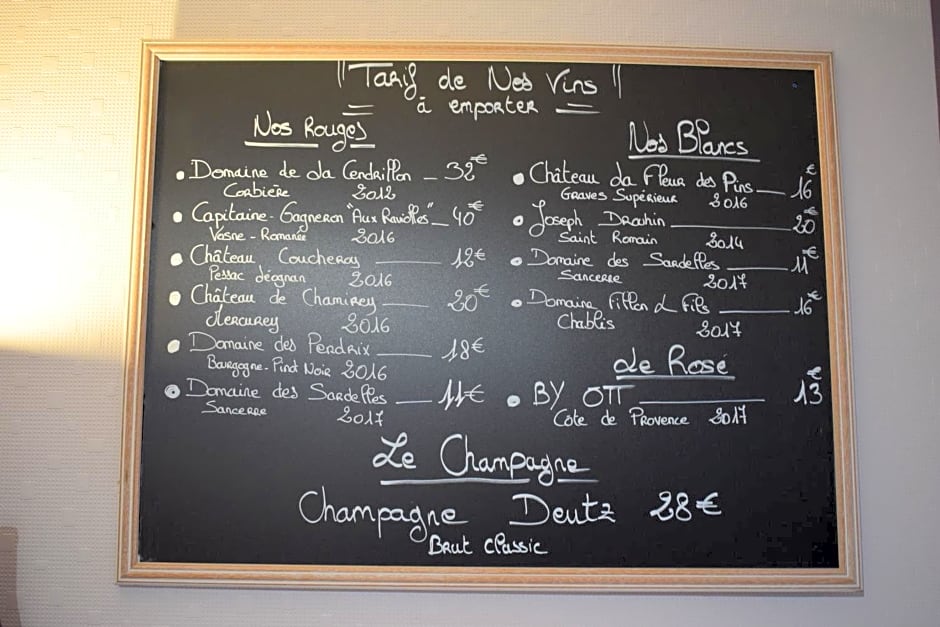 "Tarif de Nos Vins"
à emporter
Nos Rouges
• Domaine de la Cendrillon _ 32€
Corbière 2012
• Capitaine-Gagneron "Aux Raviolles" _ 40€
Vosne-Romanée 2016
• Château Coucheroy ___ 12€
Pessac Léognan 2016
• Château de Chamirey ___ 20€
Mercurey 2016
• Domaine des Perdrix ___ 18€
Bourgogne-Pinot Noir 2016
• Domaine des Sardelles ___ 11€
Sancerre 2017
Nos Blancs
• Château La Fleur des Pins ___ 16€
Graves Supérieur 2016
• Joseph Drouhin ___ 20€
Saint Romain 2014
• Domaine des Sardelles ___ 11€
Sancerre 2017
• Domaine & Fils ___ 16€
Chablis 2017
Le Rosé
• BY OTT ___ 13€
Côte de Provence 2017
Le Champagne
Champagne Deutz 28€
Brut Classic